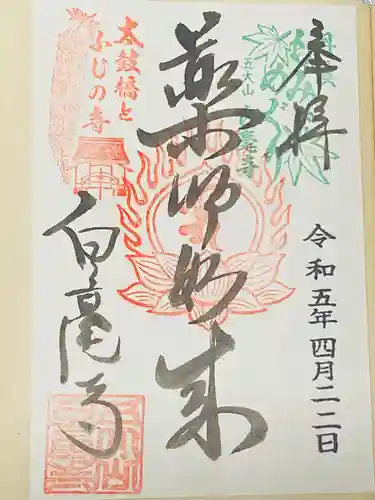 奉拝
令和五年四月二二日
丹波
もみじ
めぐり
五大山 白毫寺
薬師如来
太鼓橋と
ふじの寺
白毫寺